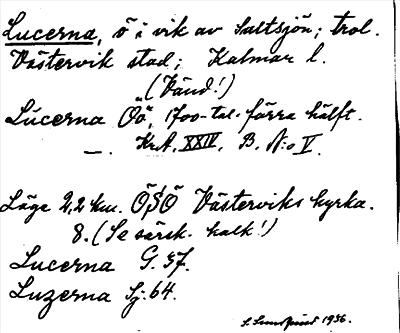 Lucerna, ö i vik av Saltsjön; trol.
Västervik stad; Kalmar l.
(Vänd!)
Lucerna Öö, 1700-tal. förra hälft.
—. KrA, XXIV, B. N:o V.
Läge 2,2 km. ÖSÖ Västerviks kyrka.
8. (Se särsk. kalk!)
Lucerna G. 37.
Luzerna Sj. 64.
1936.